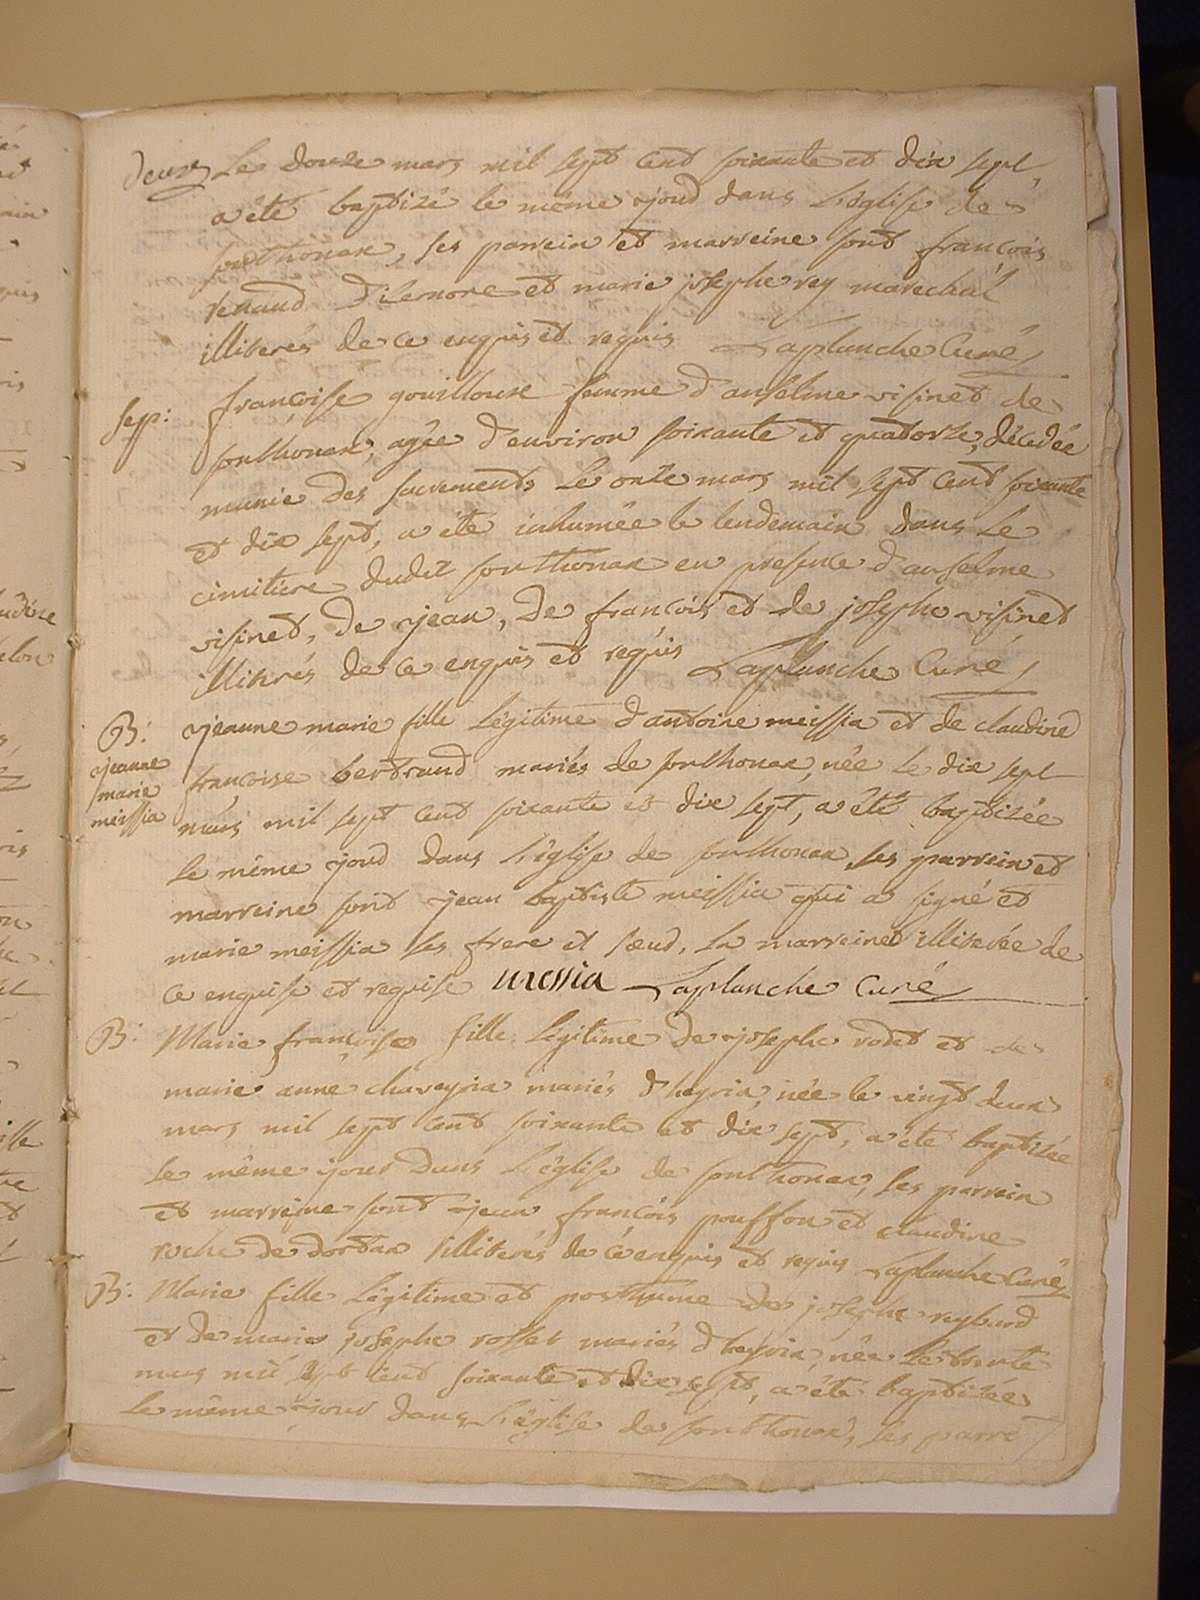 deux Le douze mars mil sept cent soixante et dix sept,
a été baptizé le même jour dans l'église de
sonthonax, ses parrein et marreine sont françois
renaud et marie josephe rey marechal
illiterés de ce enquis et requis Laplanche Curé
sep: françoise gouilloux femme d'anselme visined de
sonthonax, agée d'environ soixante et quatorze, décédée
munie des sacrements le onze mars mil sept cent soixante
et dix sept, a été inhumée le lendemain dans le
cimitiere dudit sonthonax en presence d'anselme
visined, de jean, de françois et de josephe visined
illiterés de ce enquis et requis Laplanche Curé
B: jeanne marie fille légitime d'antoine meissia et de claudine
jeanne marie meissia
francoise bertrand mariés de sonthonax, née le dix sept
mars mil sept cent soixante et dix sept, a été baptizée
le même jour dans l'église de sonthonax, ses parrein et
marreine sont jean baptiste meissia qui a signé et
marie meissia ses frere et soeur, la marreine illiterée de
ce enquise et requise messia Laplanche Curé
B: Marie françoise fille légitime de josephe rodet et de
marie anne chaveyria mariés d'heyria, née le vingt deux
mars mil sept cent soixante et dix sept, a été baptizée
le même jour dans l'église de sonthonax, ses parrein
et marreine sont jean françois pouffon et claudine
roche de dortan illiterés de ce enquis et requis Laplanche Curé
B: Marie fille légitime et posthume de josephe reybard
et de marie josephe rosset mariés d'heyria, née le trente
mars mil sept cent soixante et dix sept, a été baptizée
le même jour dans l'église de sonthonax, ses parre